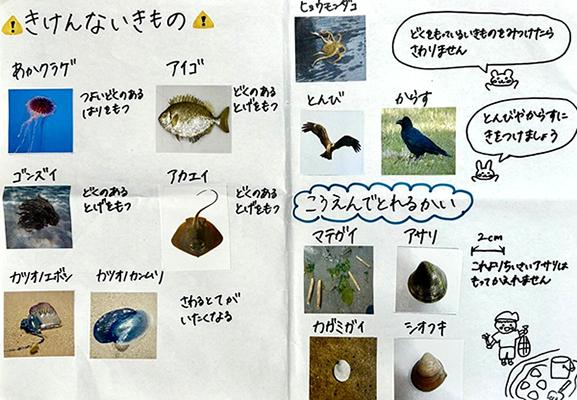 きけんないきもの
あかクラゲ
つよいどくのある
はりをもつ
アイゴ
どくのある
とげをもつ
ゴンズイ
どくのある
とげをもつ
アカエイ
どくのある
とげをもつ
カツオノエボシ
カツオノカンムリ
さわるとてが
いたくなる
ヒョウモンダコ
どくをもっているいきものをみつけたら
さわりません
とんび
からす
とんびやからすに
きをつけましょう
こうえんでとれるかい
マテガイ
アサリ
2cm
これよりちいさいアサリは
もってかえれません
カガミガイ
シオフキ